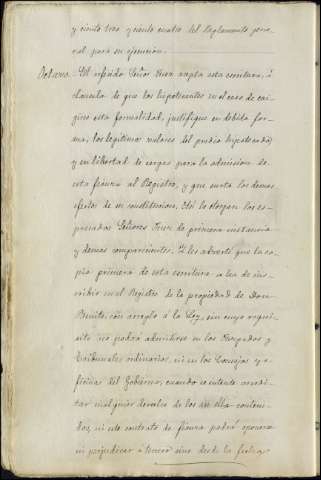 y ciento tres y ciento cuatro del Reglamento gene-
ral para su ejecución.
Octava.- El referido Señor Juez acepta esta escritura, á
cláusula de que los hipotecantes en el caso de exi-
girse esta formalidad, justifiquen en debida for-
ma, los legítimos valores del predio hipotecado,
y su libertad de cargas para la admision de
esta fianza al Registro, y que surta los demas
efectos de su constitucion. Así lo otorgan los es-
presados Señores Juez de primera instancia
y demas comparecientes; Y les advertí que la co-
pia primera de esta escritura se ha de ins-
cribir en el Registro de la propiedad de Don
Benito, con arreglo á la Ley, sin cuyo requi-
sito no podrá admitirse en los Juzgados y
Tribunales ordinarios, ni en los Consejos y o-
ficinas del Gobierno, cuando se intente acredi-
tar cualquier derecho de los en ella conteni-
dos, ni este contrato de fianza podrá oponerse
ni perjudicar á tercero sino desde la fecha